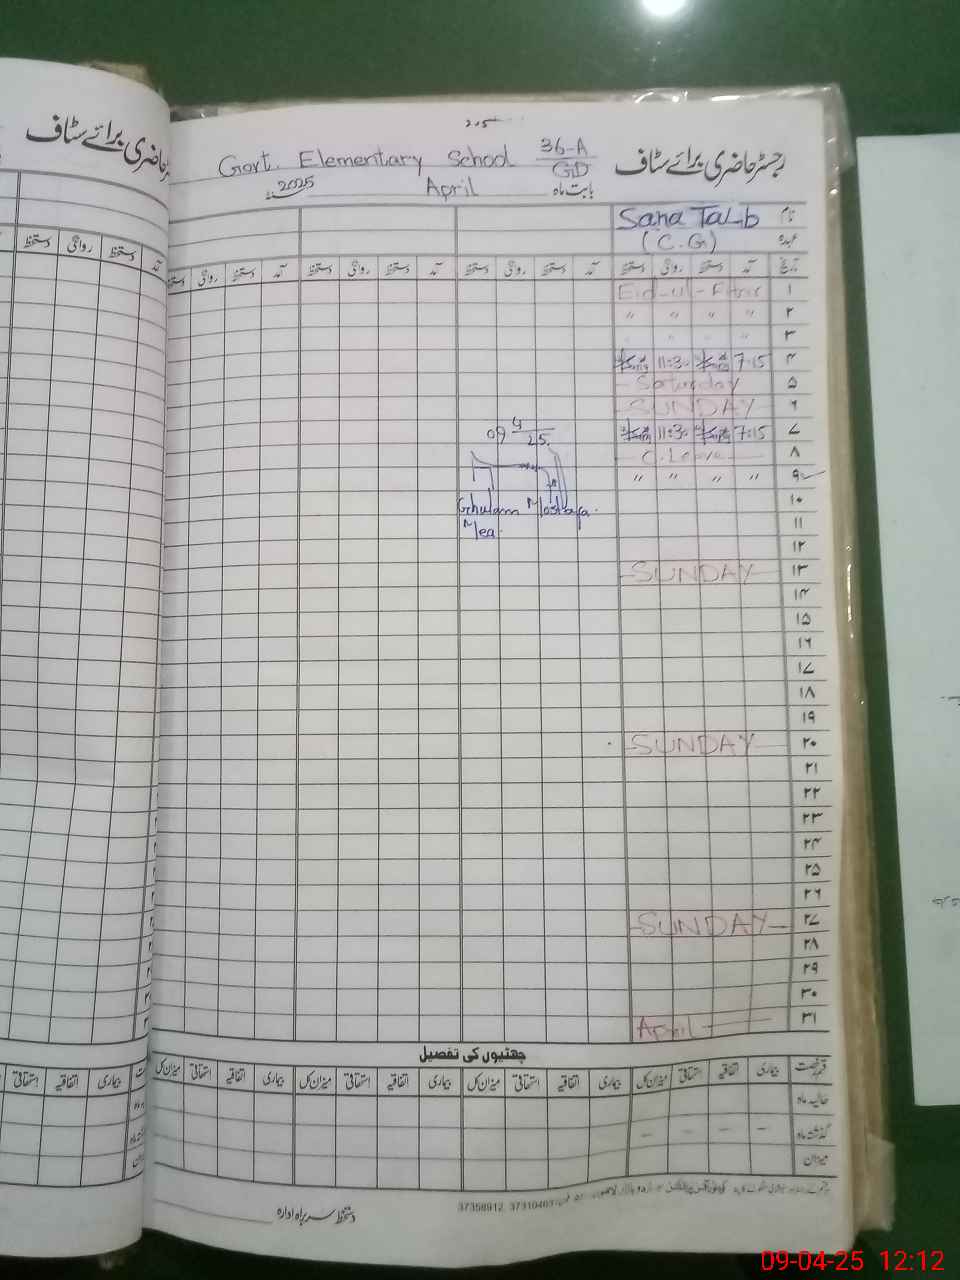 رجسٹر حاضری برائے سٹاف
Govt. Elementary School 36-A
GD
رجسٹر حاضری برائے سٹاف
بابت ماہ April 2025
نام Sana Talib
عہدہ (C.G)
تاریخ آمد دستخط روانگی دستخط آمد دستخط روانگی دستخط آمد دستخط روانگی دستخط آمد دستخط روانگی دستخط
۱ Eid-ul-Fitar
۲ " " " "
۳ " "
۴ 7:15 11:30
۵ Saturday
۶ SUNDAY
۷ 7:15 11:30
۸ C.Leave
۹ " " " "
09 4
25
Ghulam Mostafa
Mea
۱۰
۱۱
۱۲
۱۳ SUNDAY
۱۴
۱۵
۱۶
۱۷
۱۸
۱۹
۲۰ SUNDAY
۲۱
۲۲
۲۳
۲۴
۲۵
۲۶
۲۷ SUNDAY
۲۸
۲۹
۳۰
۳۱ April
چھٹیوں کی تفصیل
قسم رخصت بیماری اتفاقیہ استحقاقی میزان کل بیماری اتفاقیہ استحقاقی میزان کل بیماری اتفاقیہ استحقاقی میزان کل بیماری اتفاقیہ استحقاقی میزان کل
حالیہ ماہ
گذشتہ ماہ - - - -
میزان
37310463, 37358912
دستخط سربراہ ادارہ
09-04-25 12:12